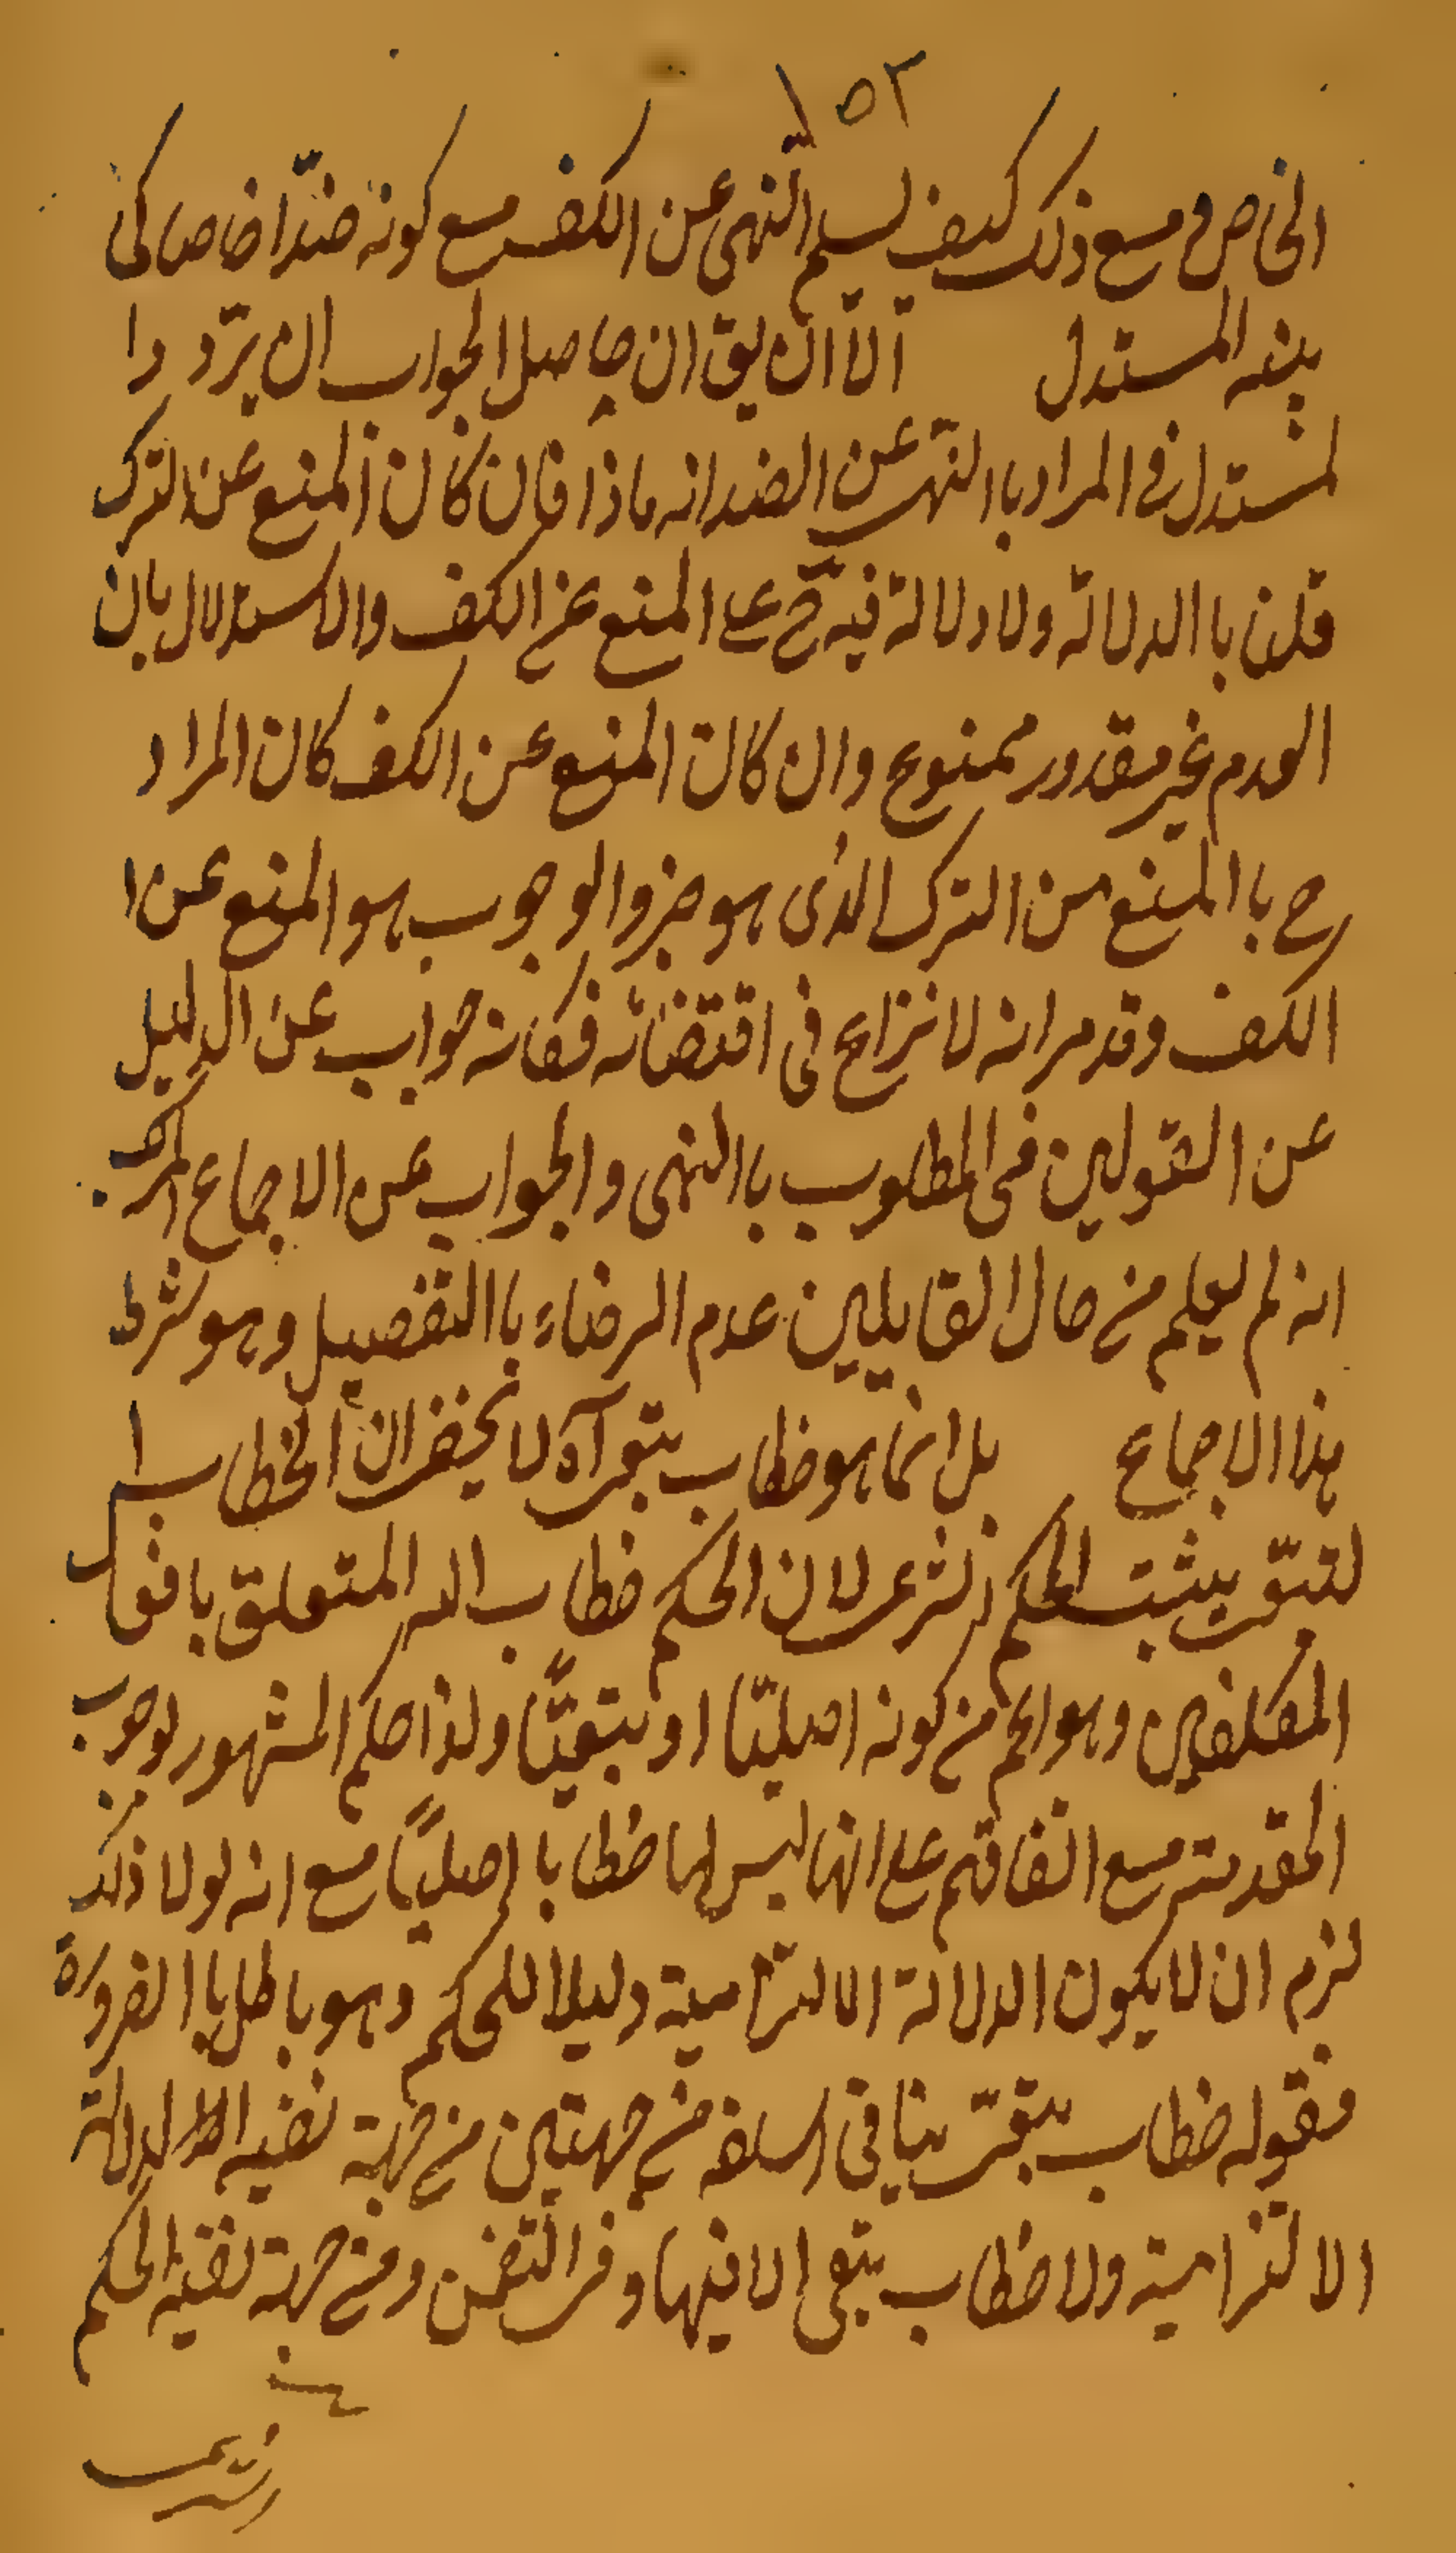 ١٥٢
الخاص و مع ذلك كيف يسلم النهى عن الكف مع كونه ضدّا خاصا كما
بينه المستدل الّا ان يق ان حاصل الجواب ان يردّد دا
لمستدل فى المراد باالنهى عن الضد انه ماذا فان كان المنع عن الترك
قلنا باالدلالة ولا دلالة فيه ح على المنع عن الكف والاستدلال بان
العدم غير مقدور ممنوع وان كان المنع عن الكف كان المراد
ح باالمنع من الترك الذى هو جزو الوجوب هو المنع عن ا
الكف وقد مر انه لا نزاع فى اقتضائه فكانه جواب عن الدليل
عن القولين فى المطلوب باالنهى والجواب عن الاجماع المركب
انه لم يعلم من حال القايلين عدم الرضاء باالتفصيل وهو شرط
هذا الاجماع بل انما هو خطاب تبعى آه لا يخفى ان الخطاب ا
لتبعى يثبت الحكم الشرعى لان الحكم خطاب الله المتعلق بافعال
المكلفين وهو اعم من كونه اصليّا او تبعيّا ولذا حكم المشهور بوجوب
المقدمة مع اتفاقهم على انها ليس لها خطابا اصليّا مع انه لولا ذلك
لزم ان لا يكون الدلالة الالتزامية دليلا للحكم وهو باطل باالضرورة
فقوله خطاب تبعى ينافى اسلفه من جهتين من جهة نفيه الدلالة
الالتزامية ولا خطاب تبعى الا فيها و فى التضمن و من جهة نفيه الحكم